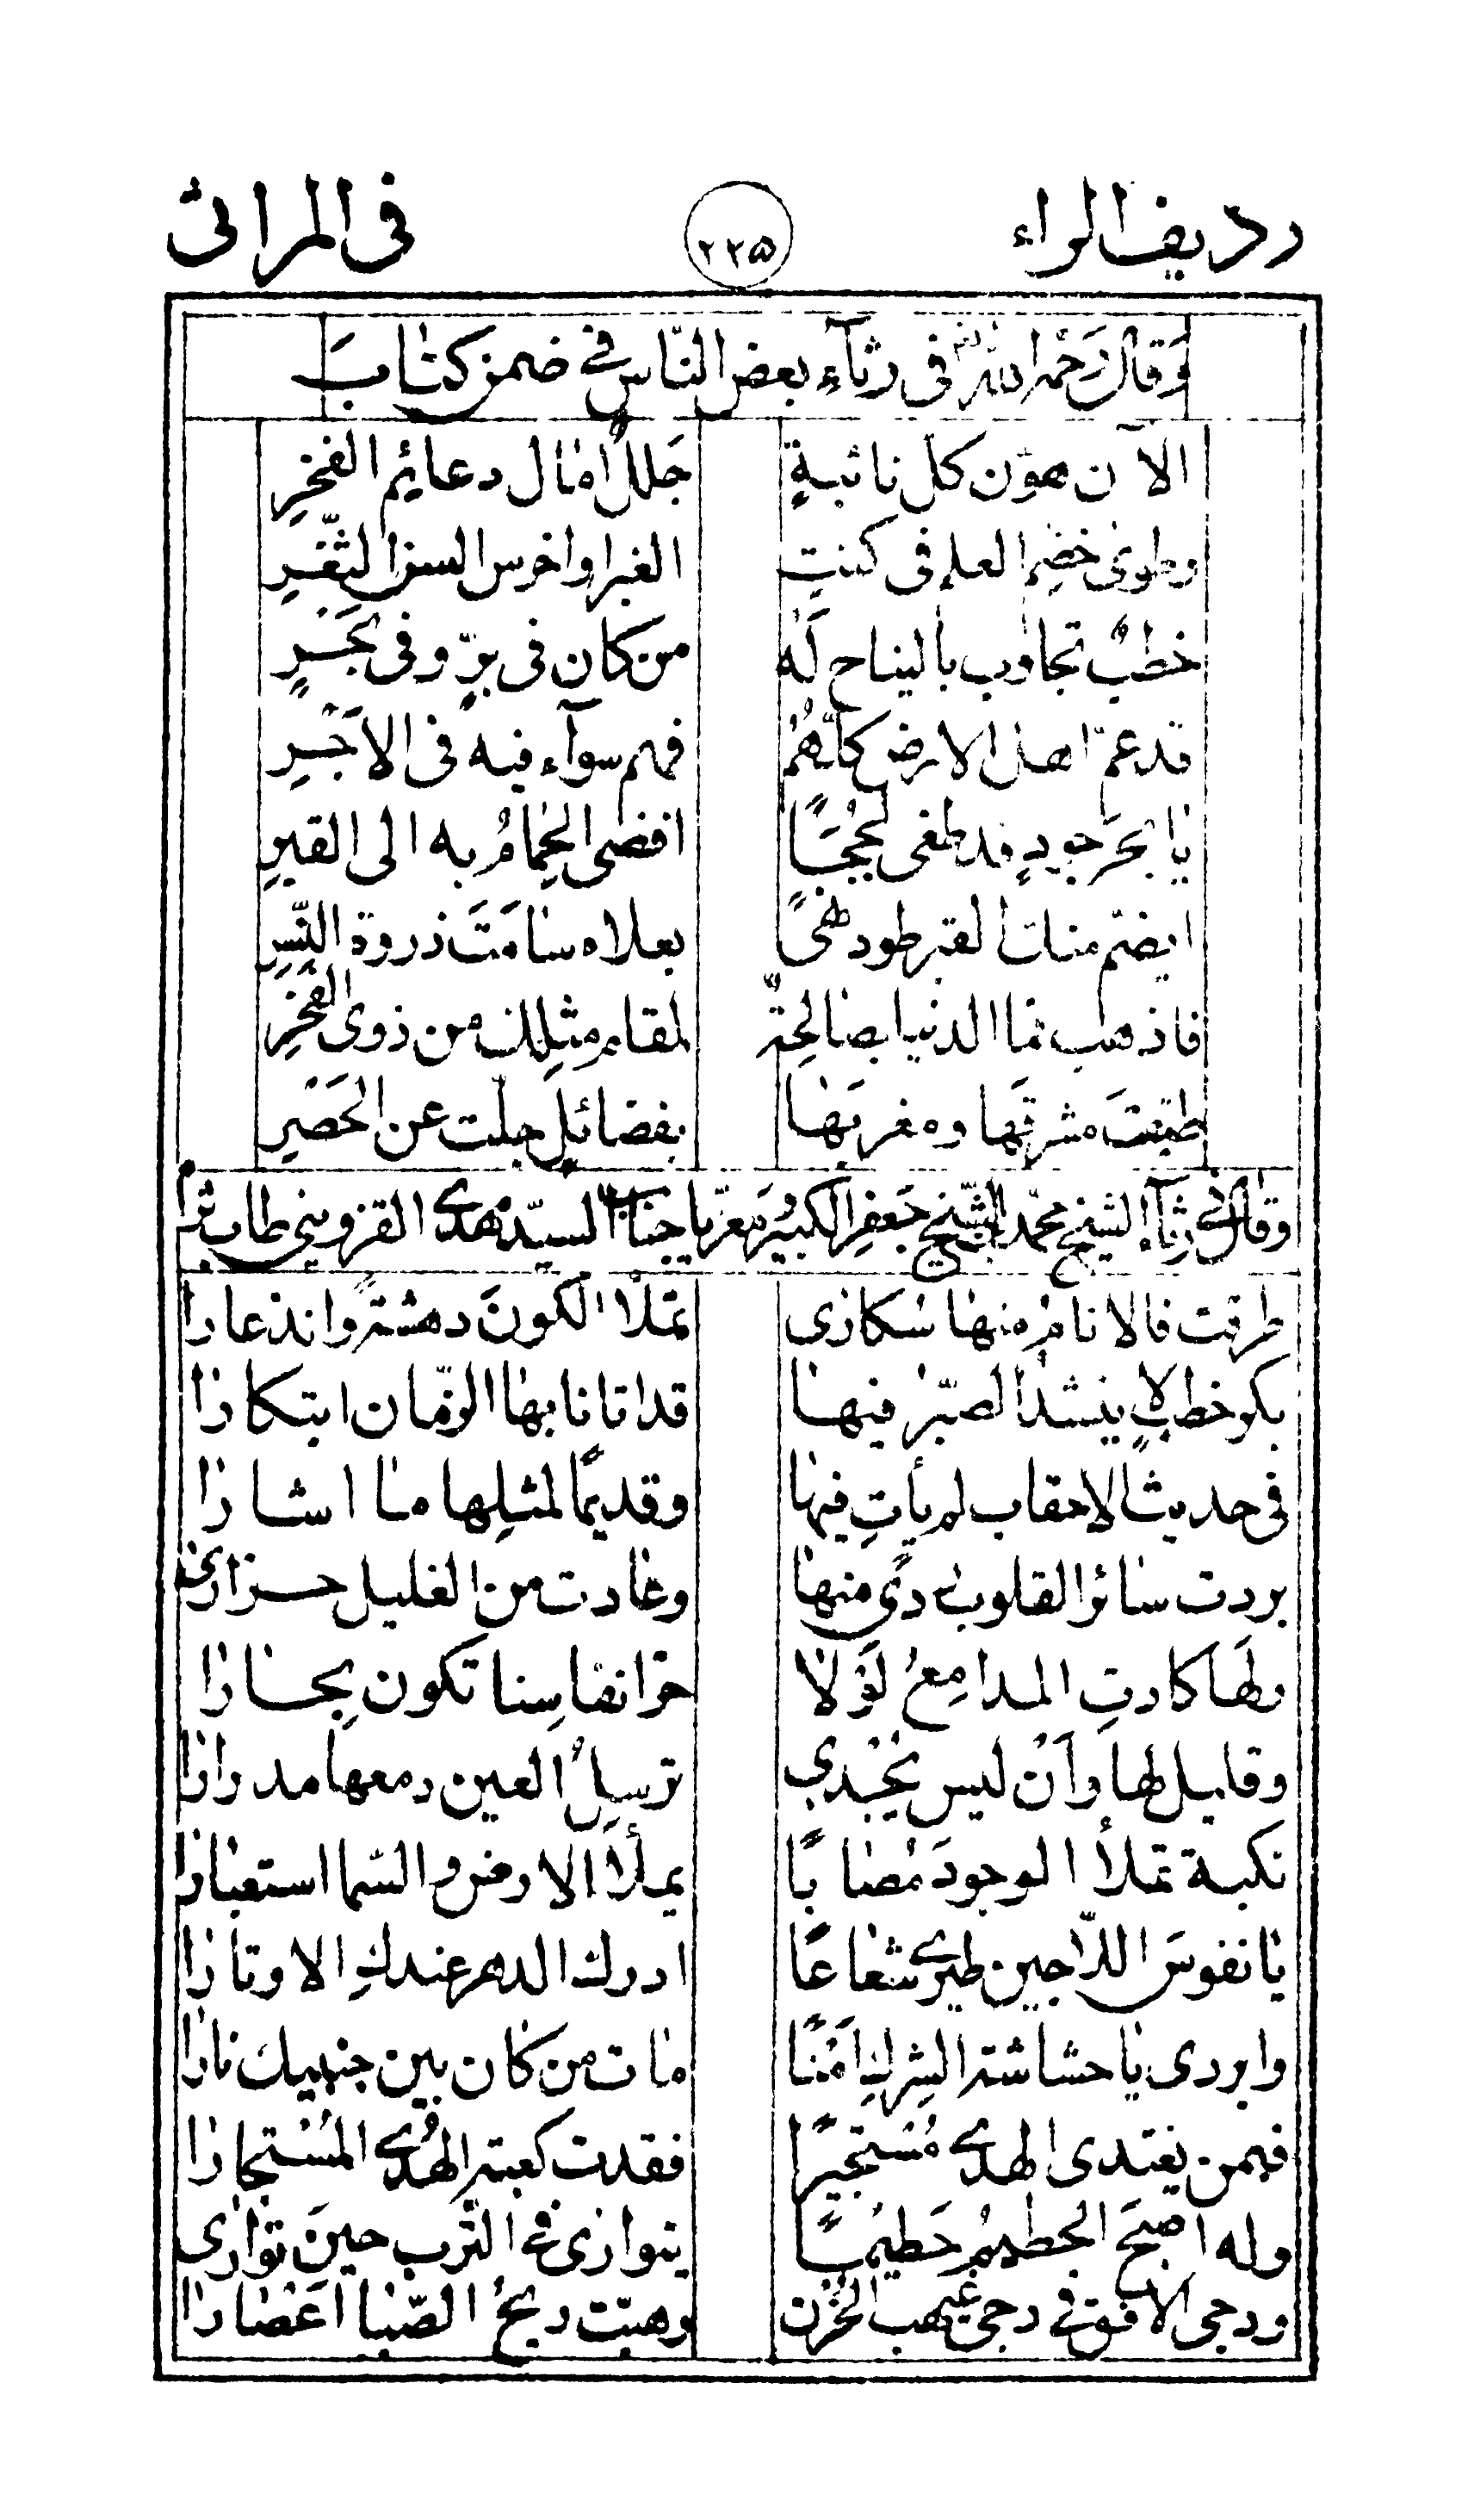 رديف الراء ٢٢٥ فى المراثى
وقال رحمه الله فى رثآء بعض النّاس فى ضمن كتاب
الآن هوّن كل نائبةٍ جَللٌ امال دعائم الفخرِ
وطوى خضِر العلم فى كنتِ الغبرا واخرس السن الشّعرِ
خطبٌ تجاوب بالنياح لَه من كان فى برٍّ وفى بَحْرٍ
قد عمّ اهل الارض كلّهُم فهم سوآء فيه فى الاَجْرِ
يا بحرَ جودٍ قد طغى لُججًا افضى الحِمامُ به الى القبرِ
ايضم منك القبر طود حجًى بعلاه سامَتَ ذروة النّسرِ
فاذهب فما الدنيا بصالحةٍ لمقام مثلِك من ذوى الفخرِ
طبّقتَ مشرقَها ومغربَها بفضائلٍ جلّت عن الحَصْرِ
وقال فى رثآء الشيخ محمّد بن الشّيخ جَعفرٍ الكبير مُعزّيا جناب السيّد مهدى القزوينى طاب ثراه
طرقت فالانام منها سكارى تملأ الكونَ دهشةً وانذعارا
بكر خطبٍ لا ينشد الصّبر فيها قد اتانا بها الزّمان ابتكارا
فى حديث الاحقاب لم يأتِ فيها وقديمًا لمثلِها ما اشارا
بردت سائر القلوب ردًى منها وغادت من الغليل حرارى
ولَها كادتِ المدامِعُ لَوْلا حرّ انفاسِنا تكون بحارا
وقليل لها وَاَنْ ليس يُجْدى ترسِلُ العين دمعها مدرارا
نكبة تملأ الوجودَ مُصابًا يملأ الارض والسّما استعبارا
يا نفوسَ الرّاجين طيرى شعاعًا ادرك الدهر عندكِ الاوتارا
وابردى يا حشاشة الشِركِ اَمْنًا مات من كان بين جنبيك نارا
فبمن يغتدى الهدى مُسْتجيرًا فقدت كعبة الهُدى المُسْتجارا
وله اصبحَ الحطيمُ حَطيمًا يتوارى فى التّرب حينَ توارى
ودجى الافق فى دجى غيهب الحُزن وهبّت ريحُ الصّبا اعصارا